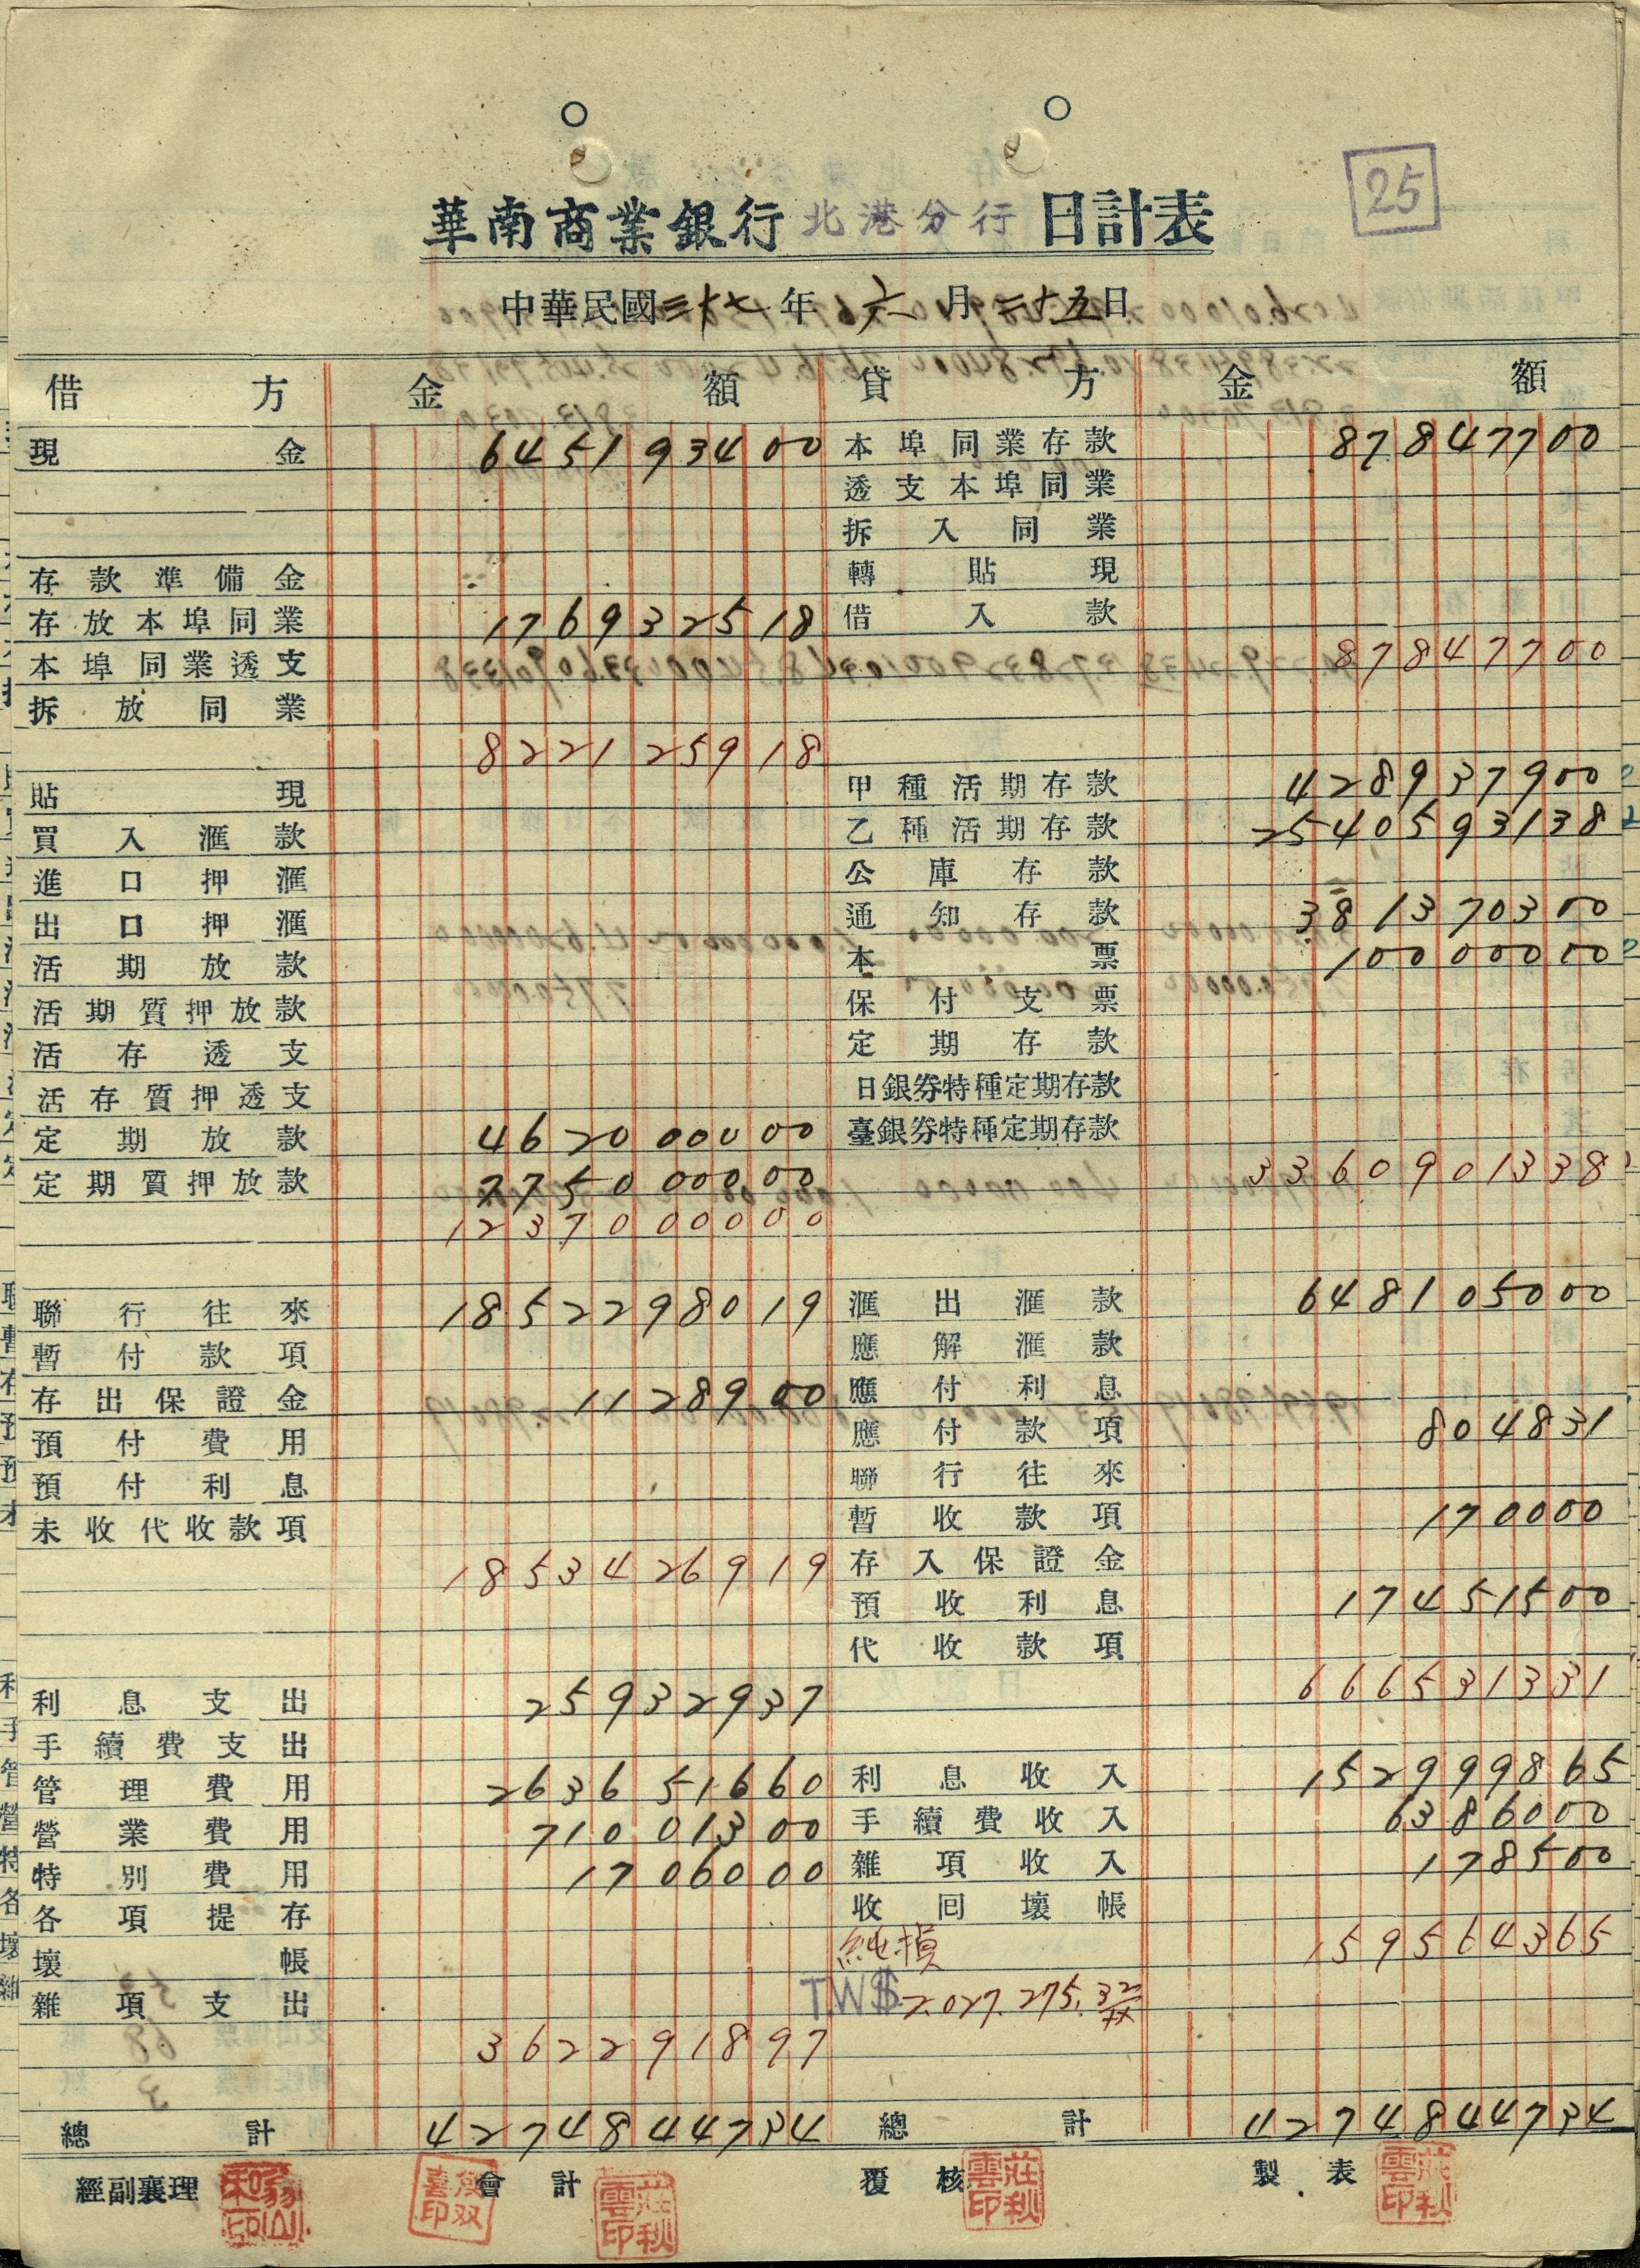 25
華南商業銀行 北港分行 日計表
中華民國三十七年 六 月二十五日
借方 金額 貸方 金額
現金 645193400 本埠同業存款 87847700
透支本埠同業
拆入同業
存款準備金 轉貼現
存放本埠同業 176932518 借入款
本埠同業透支 87847700
拆放同業
822125918
貼現 甲種活期存款 428937900
買入滙款 乙種活期存款 2540593138
進口押滙 公庫存款
出口押滙 通知存款 381370300
活期放款 本票 10000000
活期質押放款 保付支票
活存透支 定期存款
活存質押透支 日銀券特種定期存款
定期放款 462000000 臺銀券特種定期存款
定期質押放款 775000000 3360901338
1237000000
聯行往來 1852298019 滙出滙款 648105000
暫付款項 應解滙款
存出保證金 1128900 應付利息
預付費用 應付款項 804831
預付利息 聯行往來
未收代收款項 暫收款項 170000
1853426919 存入保證金
預收利息 17451500
代收款項
利息支出 25932937 666531331
手續費支出
管理費用 263651660 利息收入 152999865
營業費用 71001300 手續費收入 6386000
特別費用 1706000 雜項收入 178500
各項提存 收回壞帳
壞帳 純損 159564365
雜項支出 T.W$ 2.027.275.32
362291897
總計 4274844734 總計 4274844734
經副襄理 會計 莊秋雲印 覆核 莊秋雲印 製表 莊秋雲印